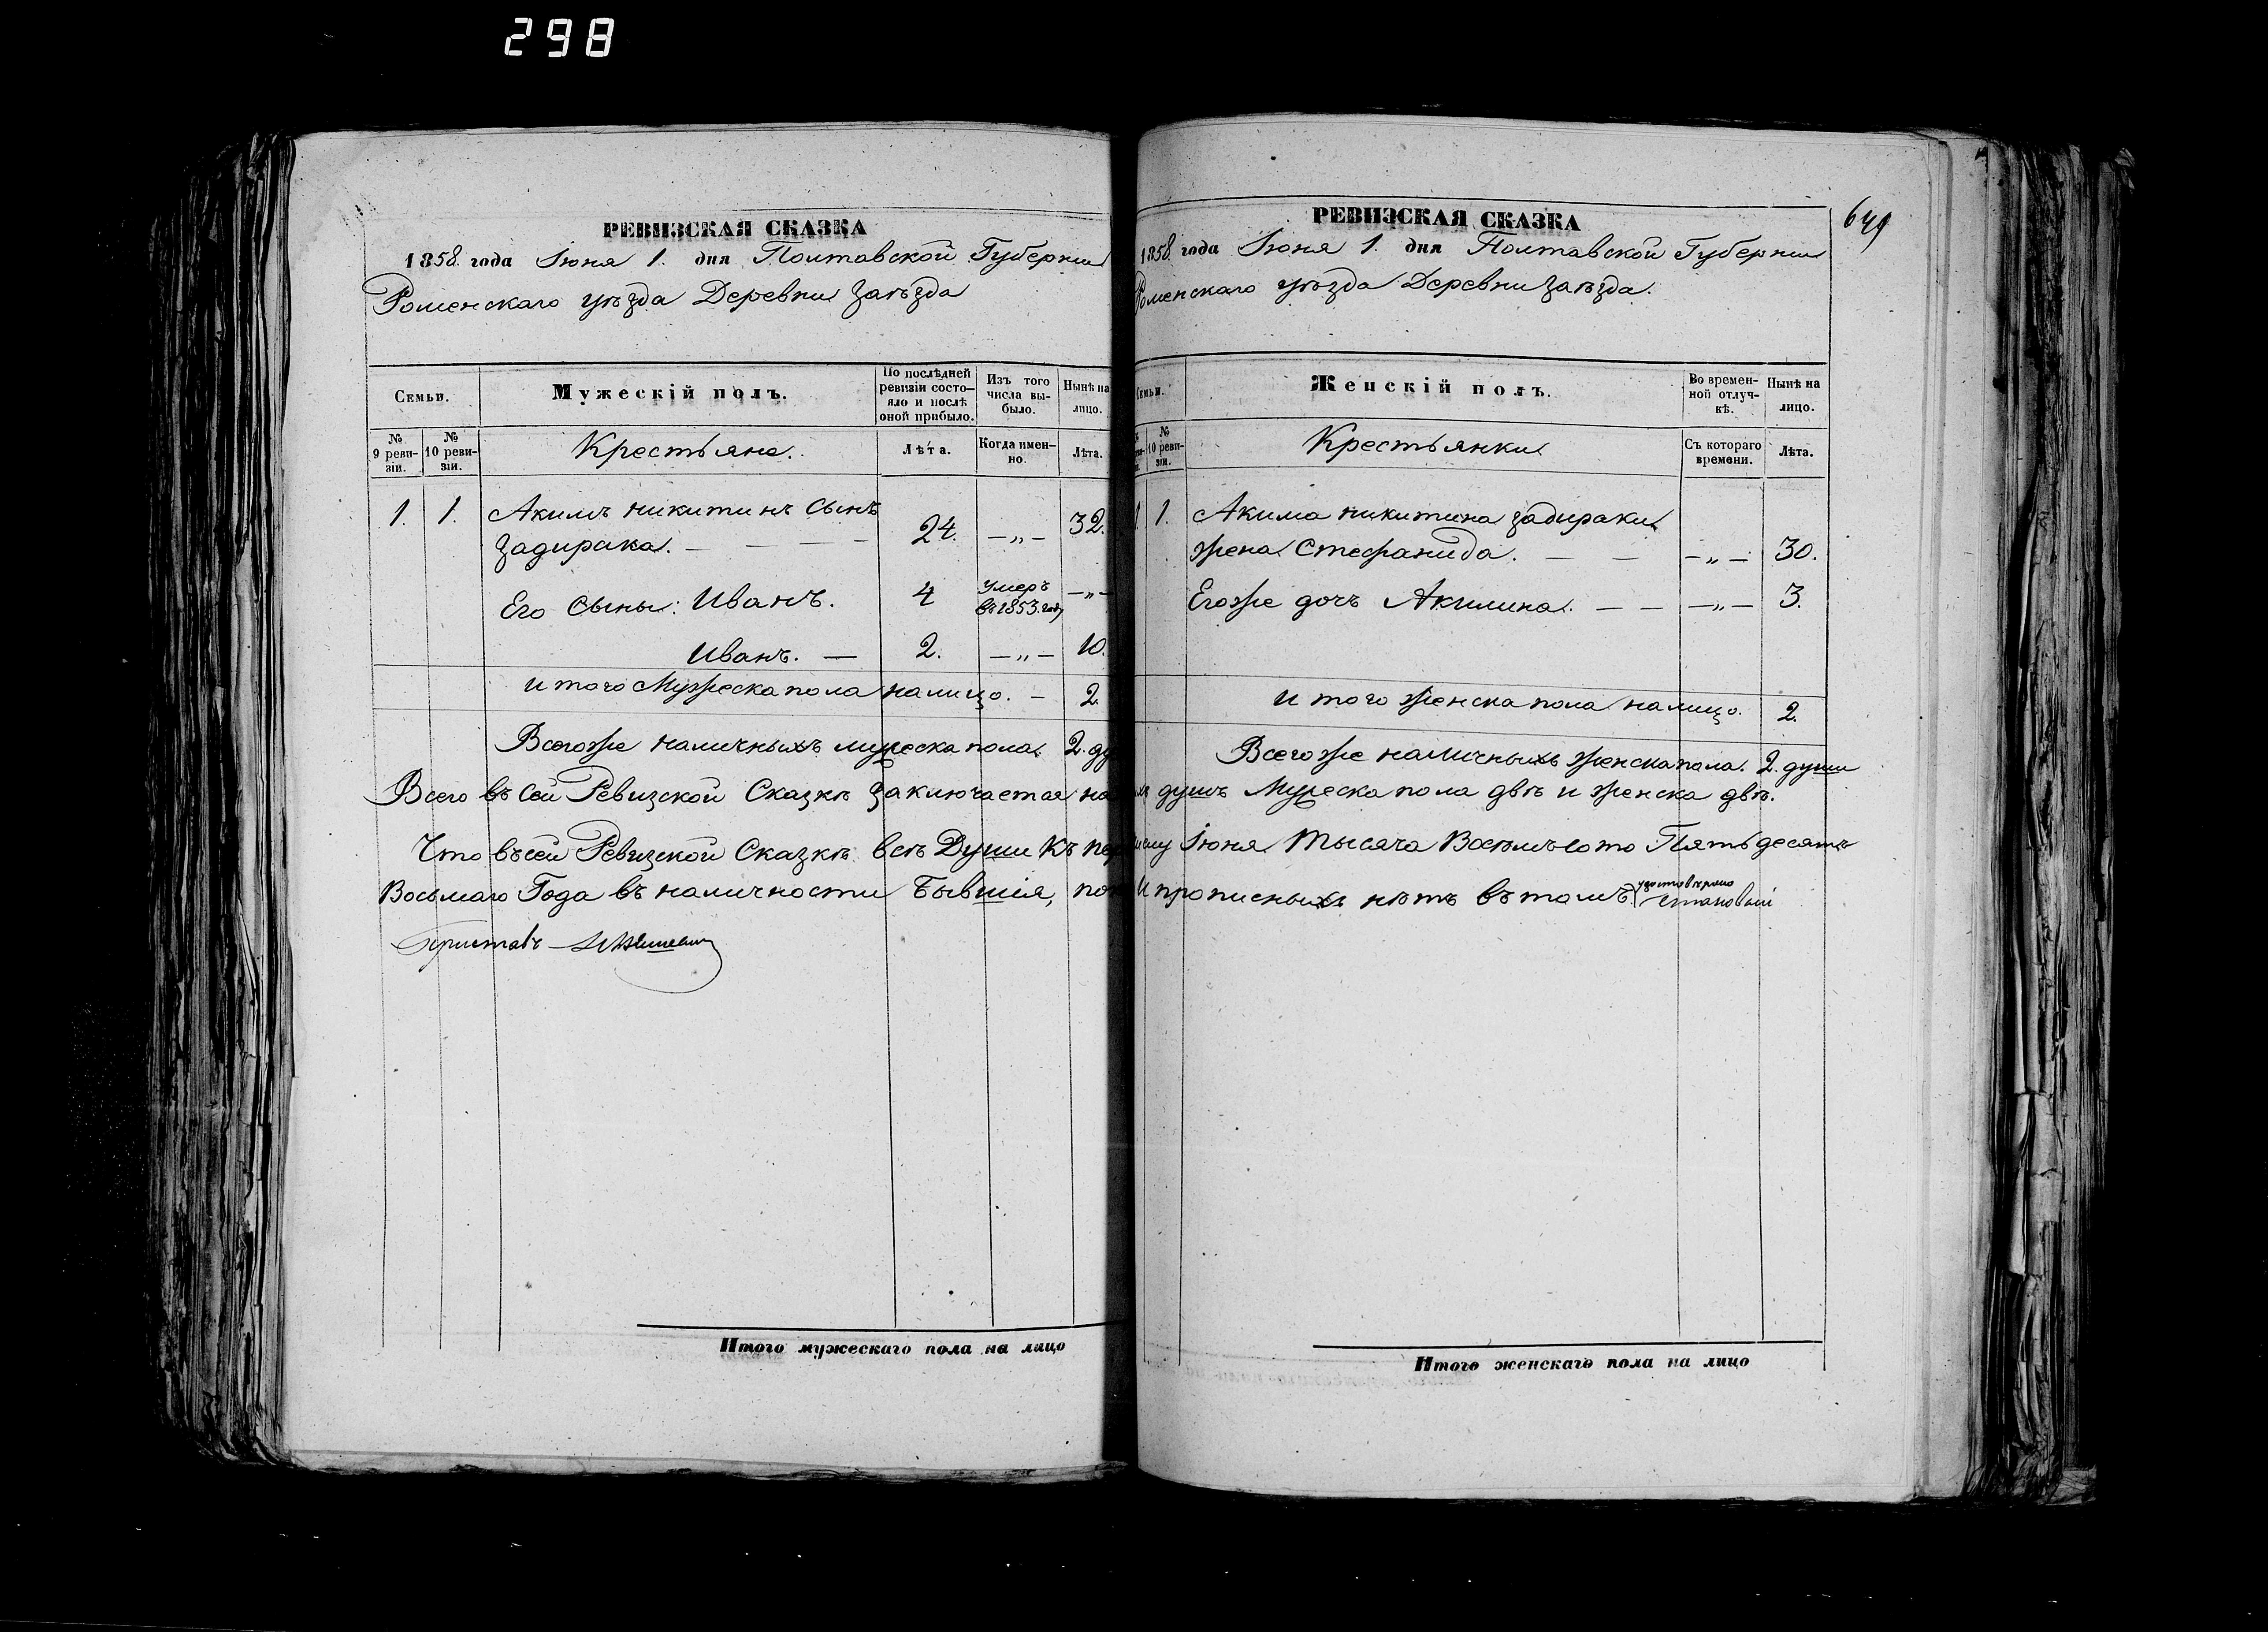 298
РЕВИЗСКАЯ СКАЗКА
1858 года Іюня 1. дня Полтавской Губерніи
Роменскаго уѣзда Деревни Заѣзда
Семьи.
Мужескій полъ.
По послѣдней ревизіи состояло и послѣ оной прибыло.
Изъ того числа выбыло.
Нынѣ на лицо.
№ 9 ревизіи.
№ 10 ревизіи.
Крестьяне.
Лѣта.
Когда именно.
Лѣта.
1. 1. Акимъ никитинъ сынъ
Задирака. — — — — 24. —„— 32.
Его сыны: Иванъ. 4 умеръ въ 1853. году —„—
Иванъ. — 2. —„— 10.
итого Мужеска пола налицо. — 2.
Всегоже наличныхъ мужеска пола. 2. ду
Всего въ сей Ревизской Сказкѣ заключается
Что въ сей Ревизской Сказкѣ всѣ Души Къ
Восьмаго Года въ наличности бывшія,
Приставъ
Итого мужескаго пола на лицо
649
РЕВИЗСКАЯ СКАЗКА
1858. года Іюня 1. дня Полтавской Губерніи
Роменскаго уѣзда Деревни Заѣзда.
Семьи.
Женскій полъ.
Во временной отлучкѣ.
Нынѣ на лицо.
№ 10 ревизіи.
Крестьянки
Съ котораго времени.
Лѣта.
1. Акима никитина задираки
жена Стефанида. — — —„— 30.
Егоже дочь Акилина. — — —„— 3.
итого женска пола налицо. 2.
Всегоже наличныхъ женска пола. 2. души
душъ Мужеска пола двѣ и женска двѣ.
Іюня Тысяча Восемьсото Пятьдесятъ
и прописныхъ нѣтъ въ томъ удостовѣряю Становый
Итого женскаго пола на лицо